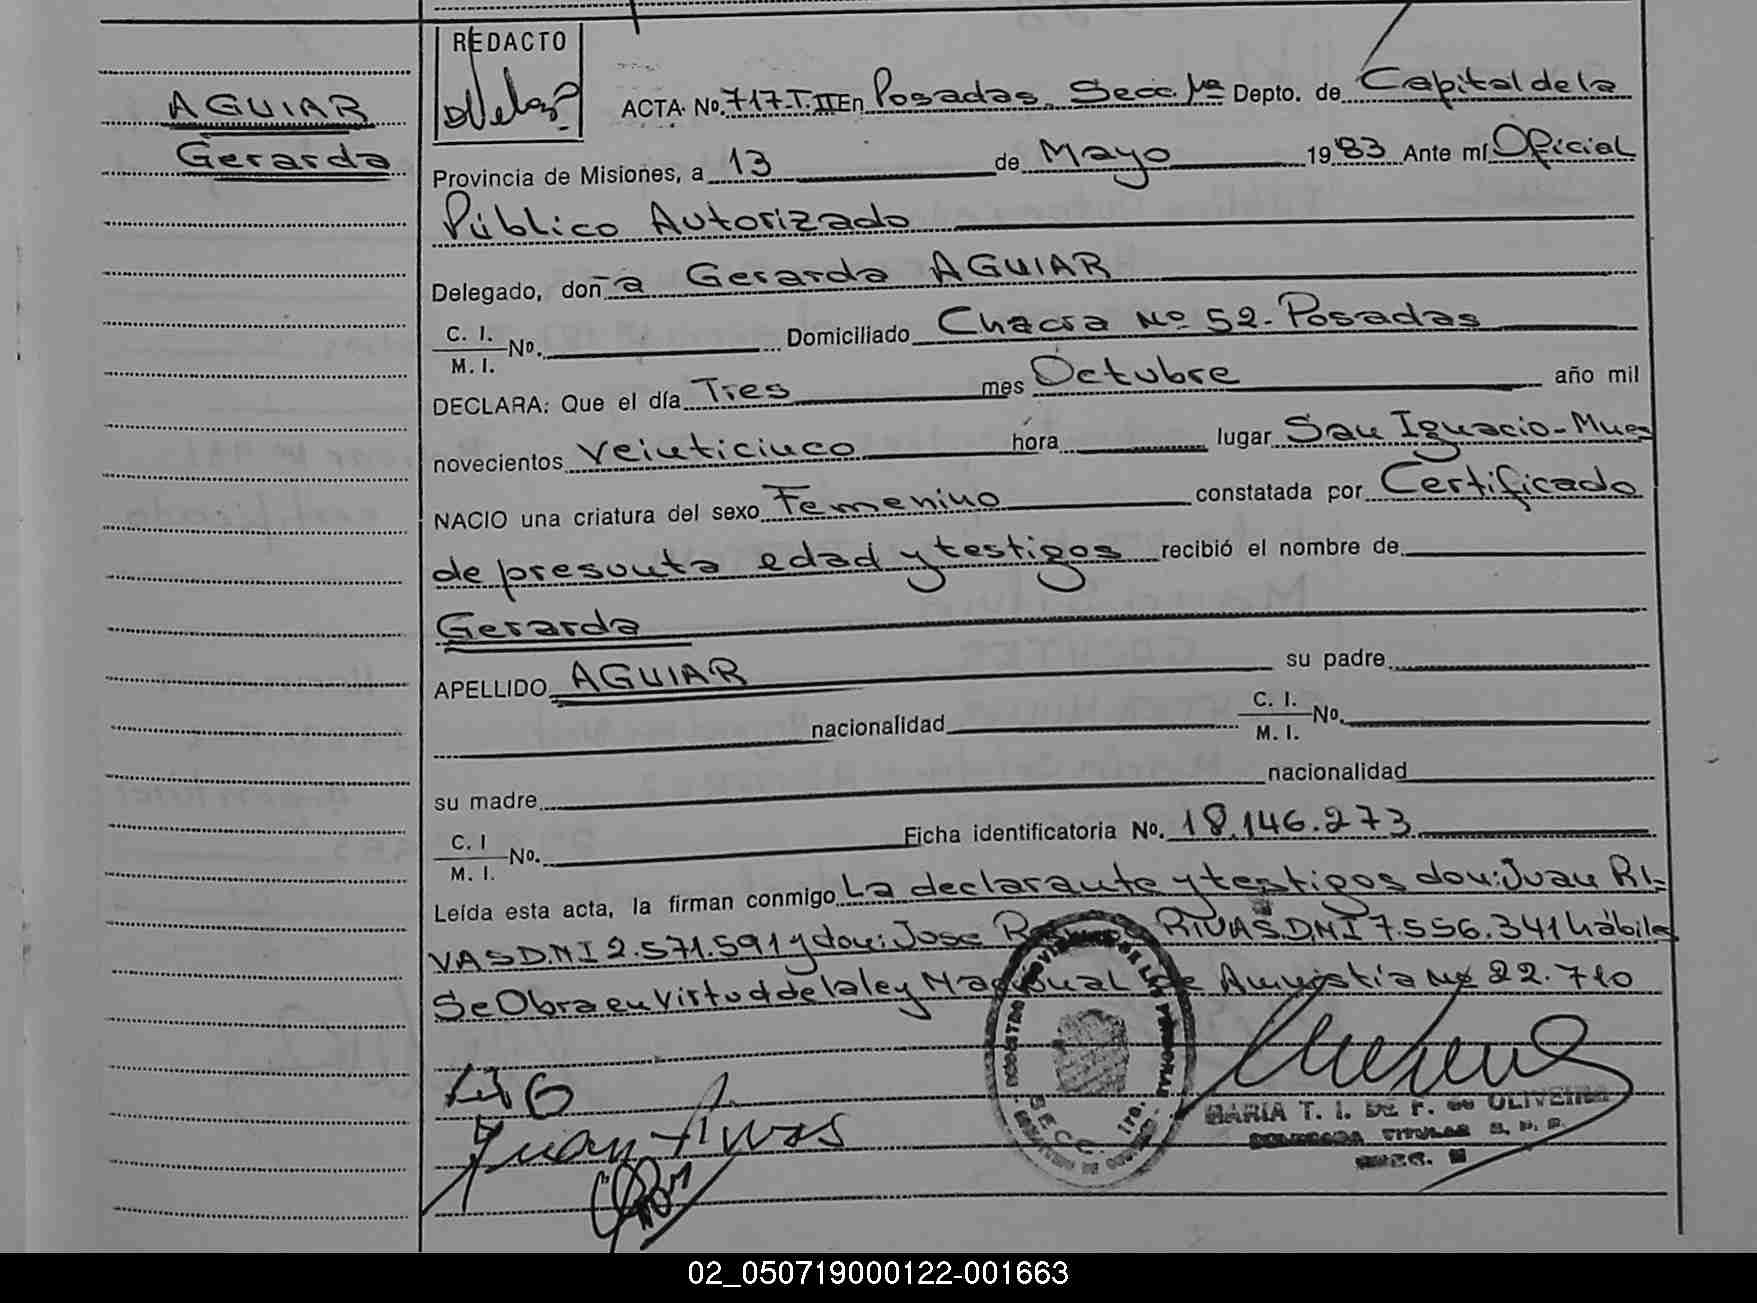 AGUIAR
Gerarda
REDACTO
ACTA No. 717.T.II En Posadas, Secc. 1ra Depto. de Capital de la
Provincia de Misiones, a 13 de Mayo 1983 Ante mí Oficial
Público Autorizado
Delegado, doña Gerarda AGUIAR
C. I.
M. I. No. Domiciliado Chacra No 52. Posadas
DECLARA: Que el día Tres mes Octubre año mil
novecientos veinticinco hora lugar San Ignacio - Mnes
NACIO una criatura del sexo Femenino constatada por Certificado
de presunta edad y testigos recibió el nombre de
Gerarda
APELLIDO AGUIAR su padre
nacionalidad C. I.
M. I. No.
su madre nacionalidad
C. I
M. I. No. Ficha identificatoria No. 18.146.273
Leída esta acta, la firman conmigo La declarante y testigos don: Juan RI-
VAS D.N.I 2.571.591 y don: Jose RIVAS. D.N.I 7.556.341 hábiles
Se Obra en Virtud de la ley Nacional de Amnistía No 22.710
Juan Rivas
MARIA T. I. DE F. de OLIVEIRA
DELEGADA TITULAR
SECC.
02_050719000122-001663